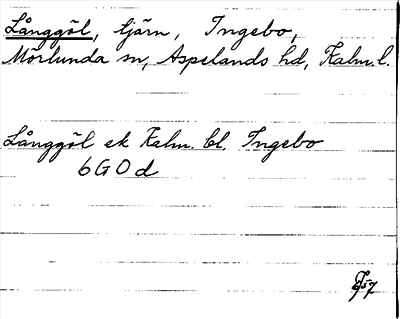 Långgöl, tjärn, Ingebo,
Mörlunda sn, Aspelands hd, Kalm. l.
Långgöl ek Kalm. bl. Ingebo
6G0d